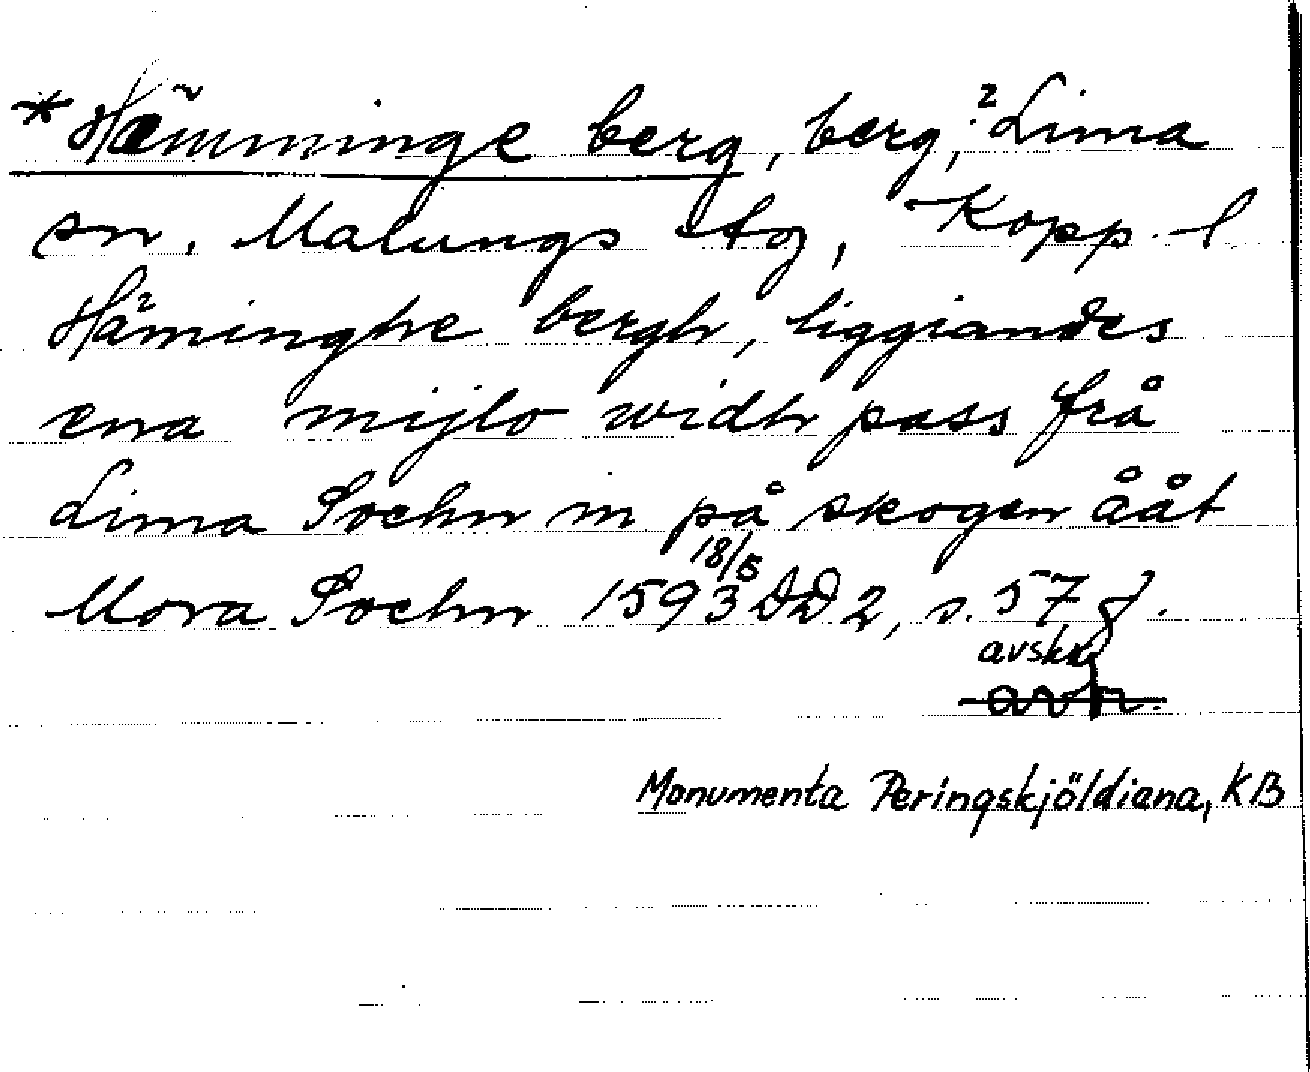 *Hämminge berg, berg, ? Lima
sn. Malungs tg, Kopp. l
Häminghe bergh, liggiandes
ena mijlo widh pass frå
Lima Sochn in på skogen ååt
Mora Sochn 1593 18/5 DD 2, s. 57 f.
avskr
avskr.
Monumenta Peringskjöldiana, KB